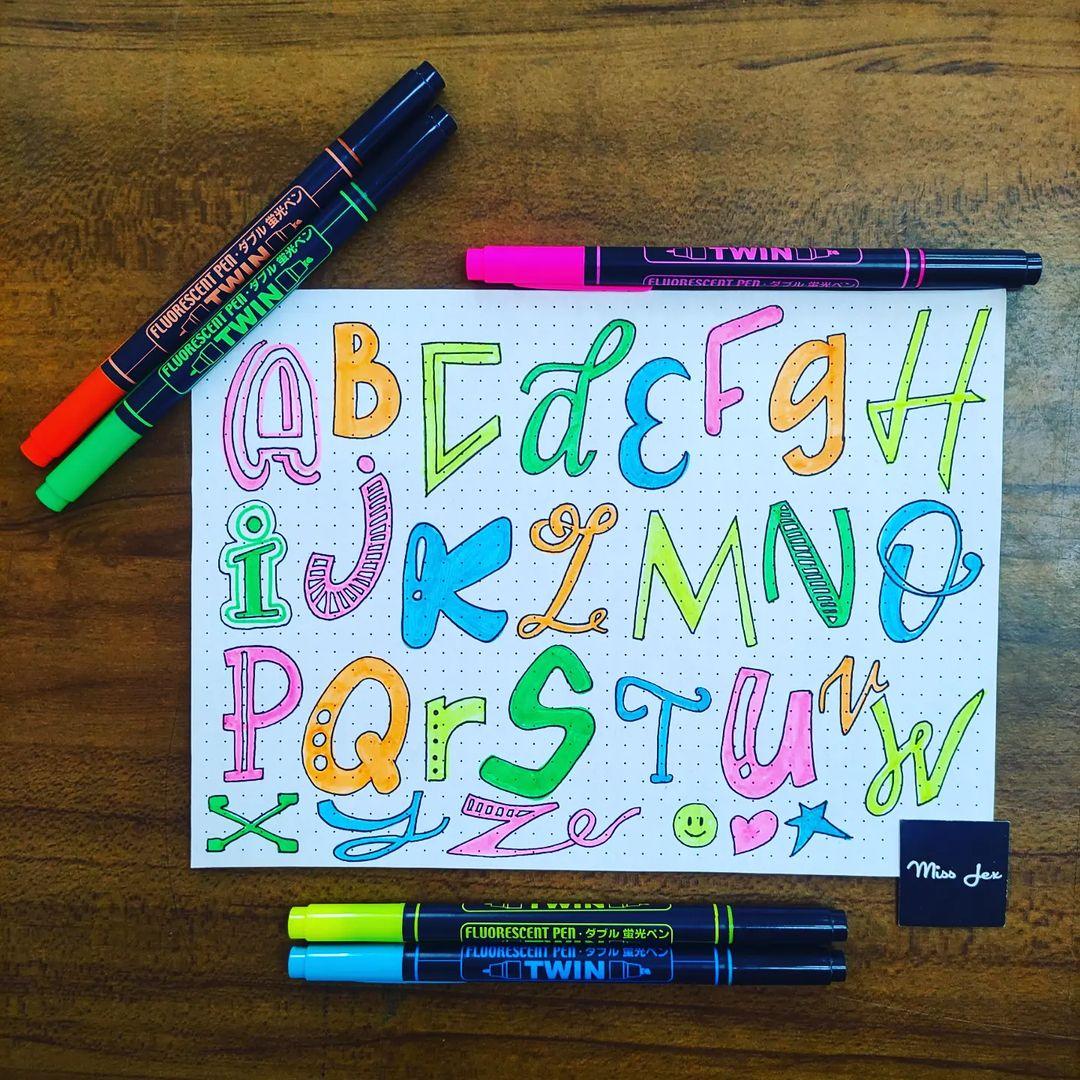 FLUORESCENT PEN・ダブル 蛍光ペン
TWIN
FLUORESCENT PEN・ダブル 蛍光ペン
TWIN
TWIN
FLUORESCENT PEN・ダブル 蛍光ペン
A B C d E F g H
i j K L M N O
P Q r S T u v W
x y z
Miss Jex
TWIN
FLUORESCENT PEN・ダブル 蛍光ペン
FLUORESCENT PEN・ダブル 蛍光ペン
TWIN